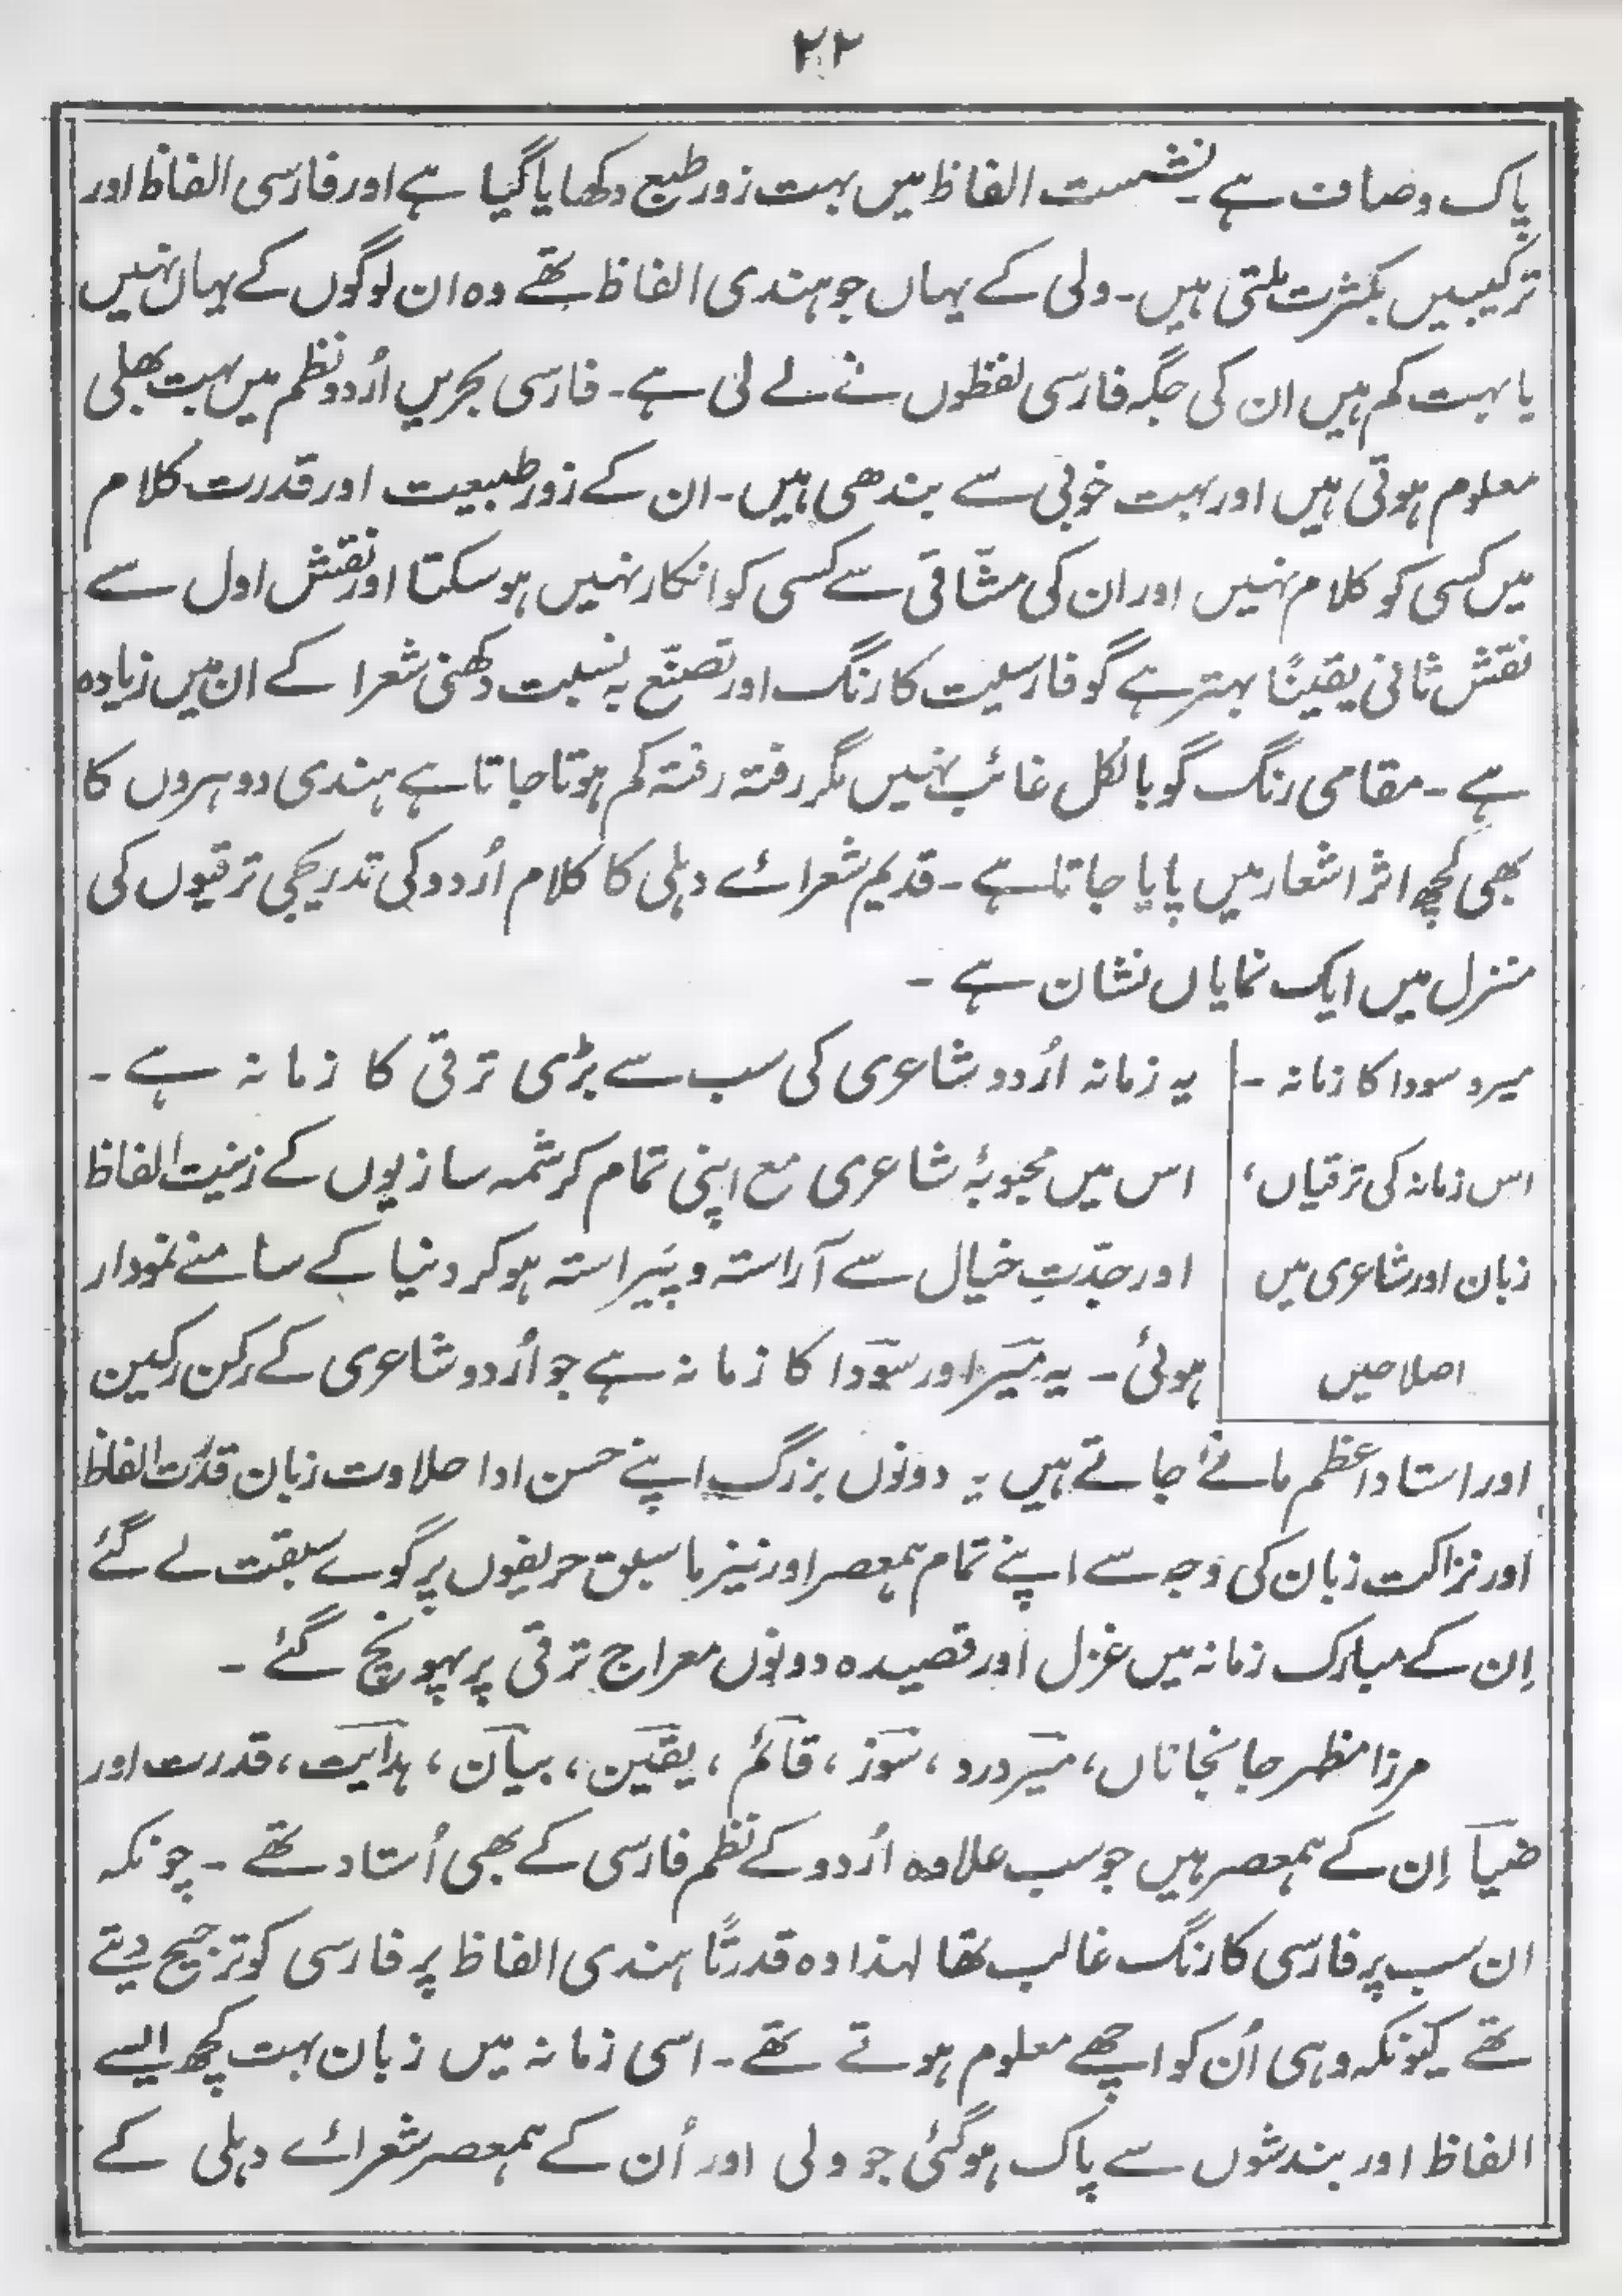 ۲۲
پاک وصاف ہے۔ نشست الفاظ میں بہت زور طبع دکھایا گیا ہے اور فارسی الفاظ اور
ترکیبیں بکثرت ملتی ہیں۔ ولی کے یہاں جو ہندی الفاظ تھے وہ ان لوگوں کے یہاں نہیں
یا بہت کم ہیں ان کی جگہ فارسی لفظوں نے لے لی ہے۔ فارسی بحریں اُردو نظم میں بہت بھلی
معلوم ہوتی ہیں اور بہت خوبی سے بندھی ہیں۔ ان کے زور طبیعت اور قدرت کلام
میں کسی کو کلام نہیں اور ان کی مشّاقی سے کسی کو انکار نہیں ہو سکتا اور نقش اول سے
نقش ثانی یقینًا بہتر ہے گو فارسیت کا رنگ اور تصنّع بہ نسبت دکھنی شعرا کے ان میں زیادہ
ہے ۔ مقامی رنگ گو بالکل غائب نہیں مگر رفتہ رفتہ کم ہوتا جاتا ہے ہندی دوہروں کا
بھی کچھ اثر اشعار میں پایا جاتا ہے ۔ قدیم شعرائے دہلی کا کلام اُردو کی تدریجی ترقیوں کی
منزل میں ایک نمایاں نشان ہے ۔
میر و سودا کا زمانہ ۔
اس زمانہ کی ترقیاں،
زبان اور شاعری میں
اصلاحیں
یہ زمانہ اُردو شاعری کی سب سے بڑی ترقی کا زمانہ ہے ۔
اس میں محبوبۂ شاعری مع اپنی تمام کرشمہ سازیوں کے زینت الفاظ
اور جدّتِ خیال سے آراستہ و پیراستہ ہو کر دنیا کے سامنے نمودار
ہوئی ۔ یہ میر اور سودا کا زمانہ ہے جو اُردو شاعری کے رکن رکین
اور استاد اعظم مانے جاتے ہیں یہ دونوں بزرگ اپنے حسن ادا حلاوت زبان قدرت الفاظ
اور نزاکت زبان کی وجہ سے اپنے تمام ہمعصر اور نیز ماسبق حریفوں پر گوے سبقت لے گئے
اِن کے مبارک زمانہ میں غزل اور قصیدہ دونوں معراج ترقی پر پہونچ گئے ۔
مرزا مظہر جانجاناں، میر درد ، سوز ، قائم ، یقین ، بیان ، ہدایت ، قدرت اور
ضیا اِن کے ہمعصر ہیں جو سب علاوہ اُردو کے نظم فارسی کے بھی اُستاد تھے ۔ چونکہ
ان سب پر فارسی کا رنگ غالب تھا لہذا وہ قدرتًا ہندی الفاظ پر فارسی کو ترجیح دیتے
تھے کیونکہ وہی اُن کو اچھے معلوم ہوتے تھے ۔ اسی زمانہ میں زبان بہت کچھ ایسے
الفاظ اور بندشوں سے پاک ہو گئی جو ولی اور اُن کے ہمعصر شعرائے دہلی کے